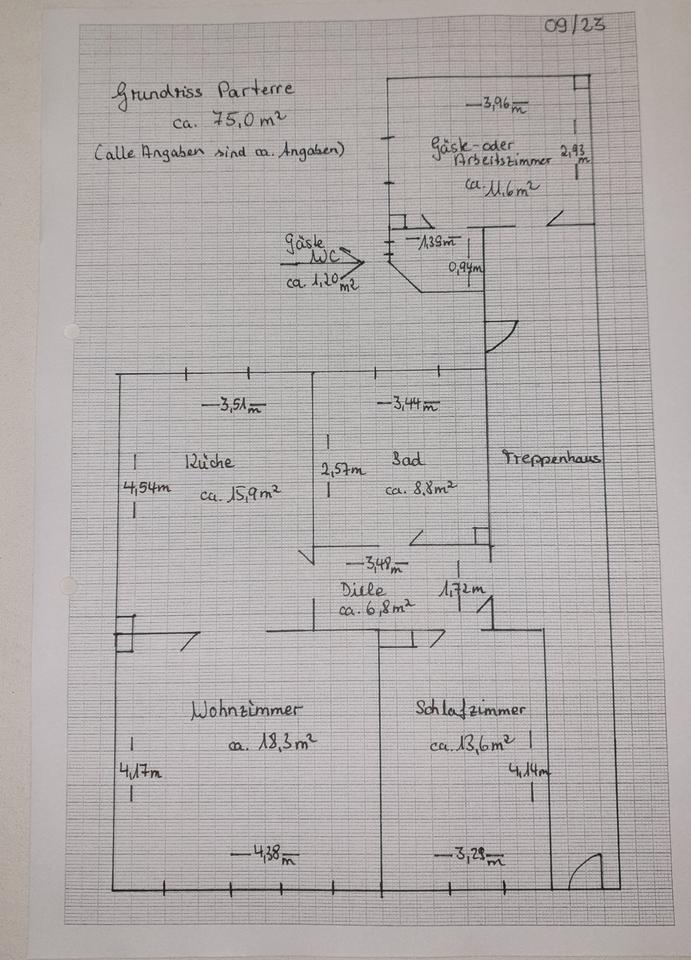 09/23
Grundriss Parterre
ca. 75,0 m²
(alle Angaben sind ca. Angaben)
3,96 m
Gäste-oder
Arbeitszimmer
2,93 m
ca. 11,6 m²
1,39 m
Gäste
WC
0,94m
ca. 1,20 m²
3,51 m
3,44 m
Küche
2,57m
Bad
Treppenhaus
4,54m
ca. 15,9 m²
ca. 8,8 m²
3,48 m
Diele
1,72m
ca. 6,8 m²
Wohnzimmer
Schlafzimmer
ca. 18,3 m²
ca. 13,6 m²
4,17m
4,14m
4,38 m
3,29 m